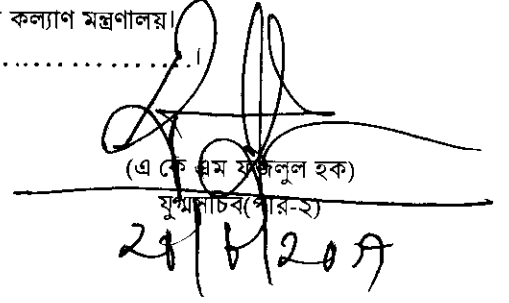 কল্যাণ মন্ত্রণালয়।
....................।
(এ কে এম ফজলুল হক)
যুগ্মসচিব(পার-২)